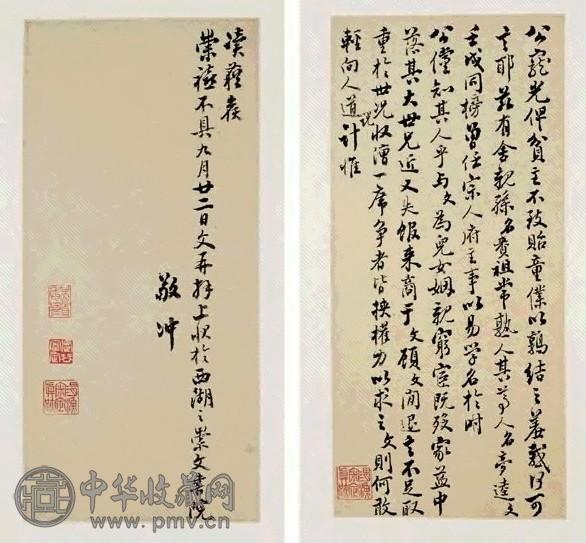 公寵光俾貧主不致貽童僕以鶉結之羞戴何可
言耶茲有舍親孫名賁祖常熟人其尊人名夢逵文
壬戌同榜曾任宗人府主事以易學名於時
公儻知其人乎與文為兒女姻親窮宦既歿家益中
落其大世兄近又失館來商于文顧文閒退言不足取
重於世況收漕一席爭者皆挾權力以求之文則何敢
輕向人道說計惟
榮禧不具九月廿二日文再拜上狀於西湖之崇文書院
敬沖
中华收藏网
www.pmv.cn